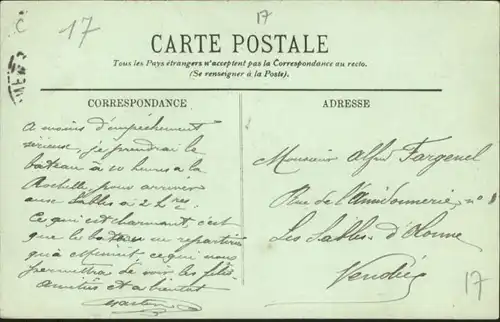 17
17
CARTE POSTALE
Tous les Pays étrangers n'acceptent pas la Correspondance au recto.
(Se renseigner à la Poste).
CORRESPONDANCE
A moins d'empêchement
sérieux, je prendrai le
bateau à 10 heures à la
Rochelle, pour arriver
aux Sables à 2 hres.
Ce qui est charmant, c'est
que le bateau en repartira
qu'à ce qui nous
permettra de voir les fêtes.
Amitiés et à bientôt
Gaston
ADRESSE
Monsieur Alfred Fargenel
Rue de l'Amidonnerie, no
Les Sables-d'Olonne
Vendée
17